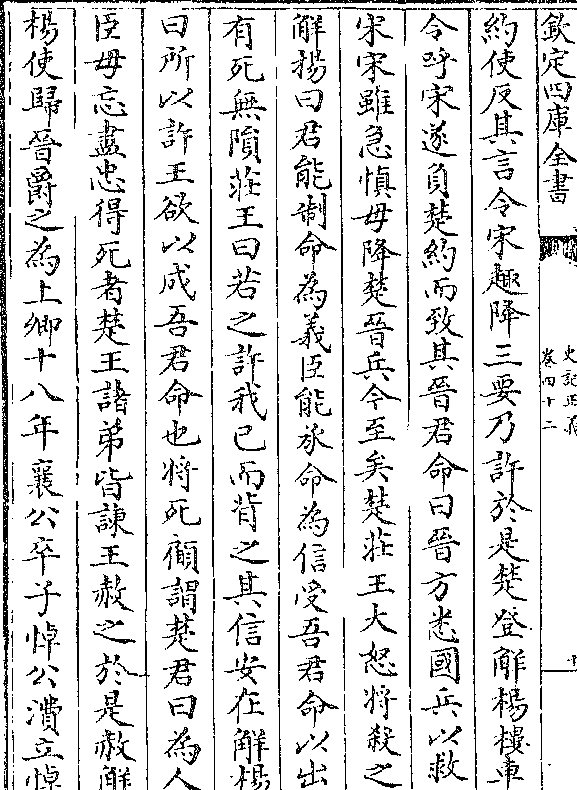 欽定四庫全書
史記正義
卷四十二
約使反其言令宋趣降三要乃許於是楚登解楊樓車
令呼宋遂負楚約而致其晉君命曰晉方悉國兵以救
宋宋雖急慎毋降楚晉兵今至矣楚莊王大怒將殺之
解揚曰君能制命為義臣能承命為信受吾君命以出
有死無隕莊王曰若之許我已而背之其信安在解楊
曰所以許王欲以成吾君命也將死顧謂楚君曰為人
臣毋忘盡忠得死者楚王諸弟皆諌王赦之於是赦解
楊使歸晉爵之為上卿十八年襄公卒子悼公㵒立悼